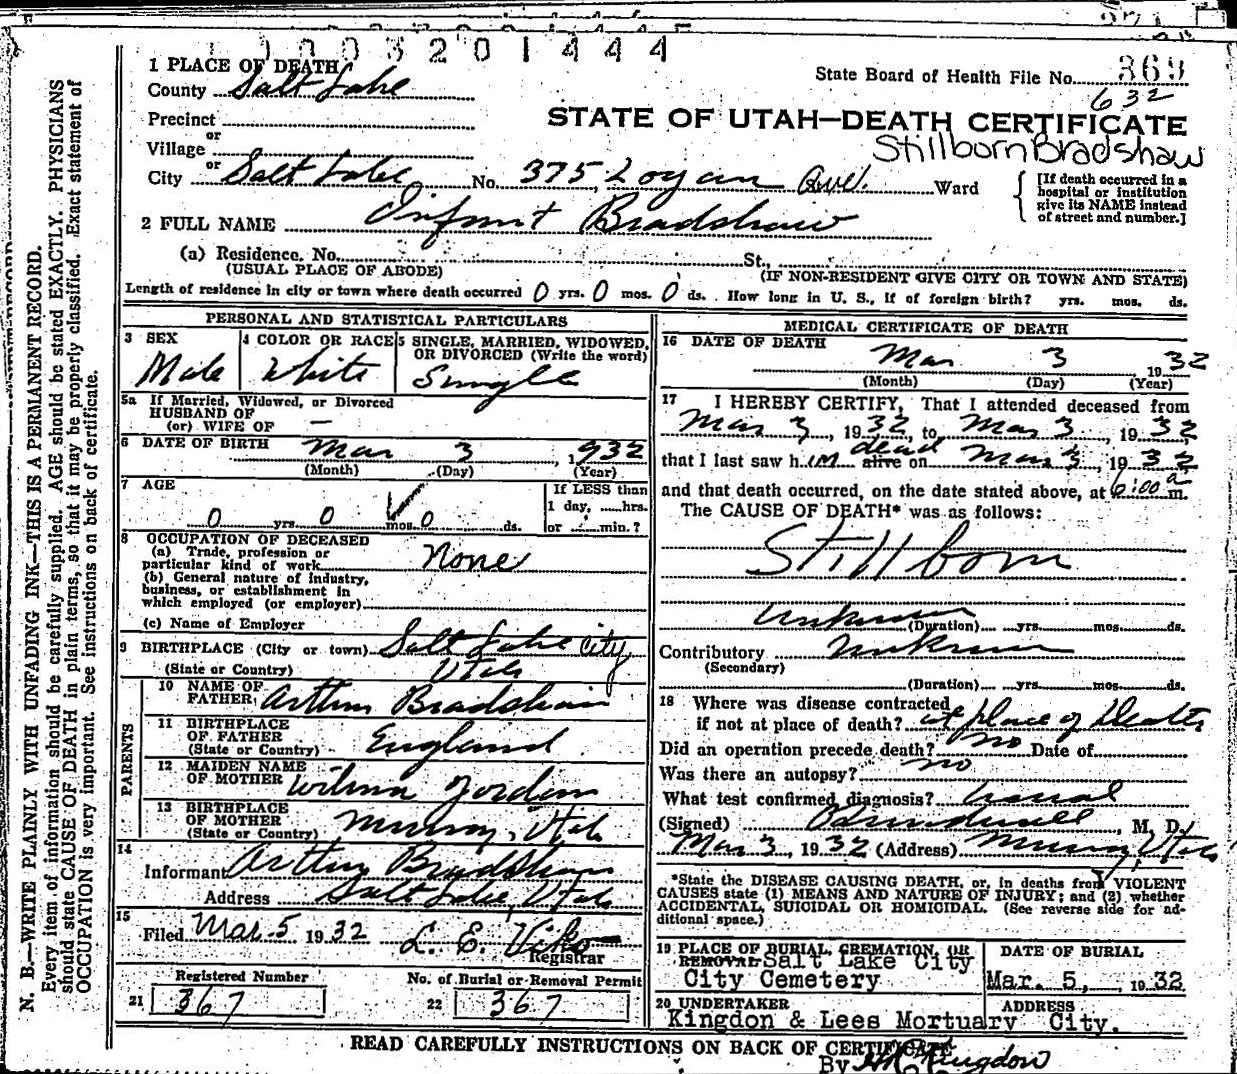 1003201444
1 PLACE OF DEATH
State Board of Health File No. 369
County Salt Lake
632
Precinct
STATE OF UTAH—DEATH CERTIFICATE
or
Stillborn Bradshaw
Village
or
City Salt Lake No. 375 Logan Ave. Ward
[If death occurred in a
hospital or institution
give its NAME instead
of street and number.]
2 FULL NAME Infant Bradshaw
(a) Residence. No. St.,
(USUAL PLACE OF ABODE) (IF NON-RESIDENT GIVE CITY OR TOWN AND STATE)
Length of residence in city or town where death occurred 0 yrs. 0 mos. 0 ds. How long in U. S., if of foreign birth? yrs. mos. ds.
PERSONAL AND STATISTICAL PARTICULARS
3 SEX
Male
4 COLOR OR RACE
White
5 SINGLE, MARRIED, WIDOWED,
OR DIVORCED (Write the word)
Single
5a If Married, Widowed, or Divorced
HUSBAND OF
(or) WIFE OF —
6 DATE OF BIRTH Mar 3, 1932
(Month) (Day) (Year)
7 AGE
0 yrs. 0 mos. 0 ds.
If LESS than
1 day, hrs.
or min.?
8 OCCUPATION OF DECEASED
(a) Trade, profession or
particular kind of work None
(b) General nature of industry,
business, or establishment in
which employed (or employer)
(c) Name of Employer
9 BIRTHPLACE (City or town) Salt Lake City
(State or Country) Utah
PARENTS
10 NAME OF
FATHER Arthur Bradshaw
11 BIRTHPLACE
OF FATHER
(State or Country) England
12 MAIDEN NAME
OF MOTHER Wilma Jordan
13 BIRTHPLACE
OF MOTHER
(State or Country) Murray, Utah
14
Informant Arthur Bradshaw
Address Salt Lake, Utah
15
Filed Mar. 5 1932 L. E. Viko
Registrar
Registered Number
21 367
No. of Burial or Removal Permit
22 367
MEDICAL CERTIFICATE OF DEATH
16 DATE OF DEATH
Mar 3 1932
(Month) (Day) (Year)
17 I HEREBY CERTIFY, That I attended deceased from
Mar 3, 1932, to Mar 3, 1932,
that I last saw him alive dead on Mar 3, 1932
and that death occurred, on the date stated above, at 6:00 a m.
The CAUSE OF DEATH* was as follows:
Stillborn
Unknown
(Duration) yrs. mos. ds.
Contributory Unknown
(Secondary)
(Duration) yrs. mos. ds.
18 Where was disease contracted
if not at place of death? at place of Death
Did an operation precede death? no Date of
Was there an autopsy? no
What test confirmed diagnosis? usual
(Signed) , M. D.
Mar 3, 1932 (Address) Murray, Utah
*State the DISEASE CAUSING DEATH, or, in deaths from VIOLENT
CAUSES state (1) MEANS AND NATURE OF INJURY; and (2) whether
ACCIDENTAL, SUICIDAL OR HOMICIDAL. (See reverse side for ad-
ditional space.)
19 PLACE OF BURIAL, CREMATION, OR
REMOVAL Salt Lake City
City Cemetery
DATE OF BURIAL
Mar. 5, 1932
20 UNDERTAKER
Kingdon & Lees Mortuary
ADDRESS
City.
READ CAREFULLY INSTRUCTIONS ON BACK OF CERTIFICATE
By Kingdon
N. B.—WRITE PLAINLY WITH UNFADING INK—THIS IS A PERMANENT RECORD.
Every item of information should be carefully supplied. AGE should be stated EXACTLY. PHYSICIANS
should state CAUSE OF DEATH in plain terms, so that it may be properly classified. Exact statement of
OCCUPATION is very important. See instructions on back of certificate.